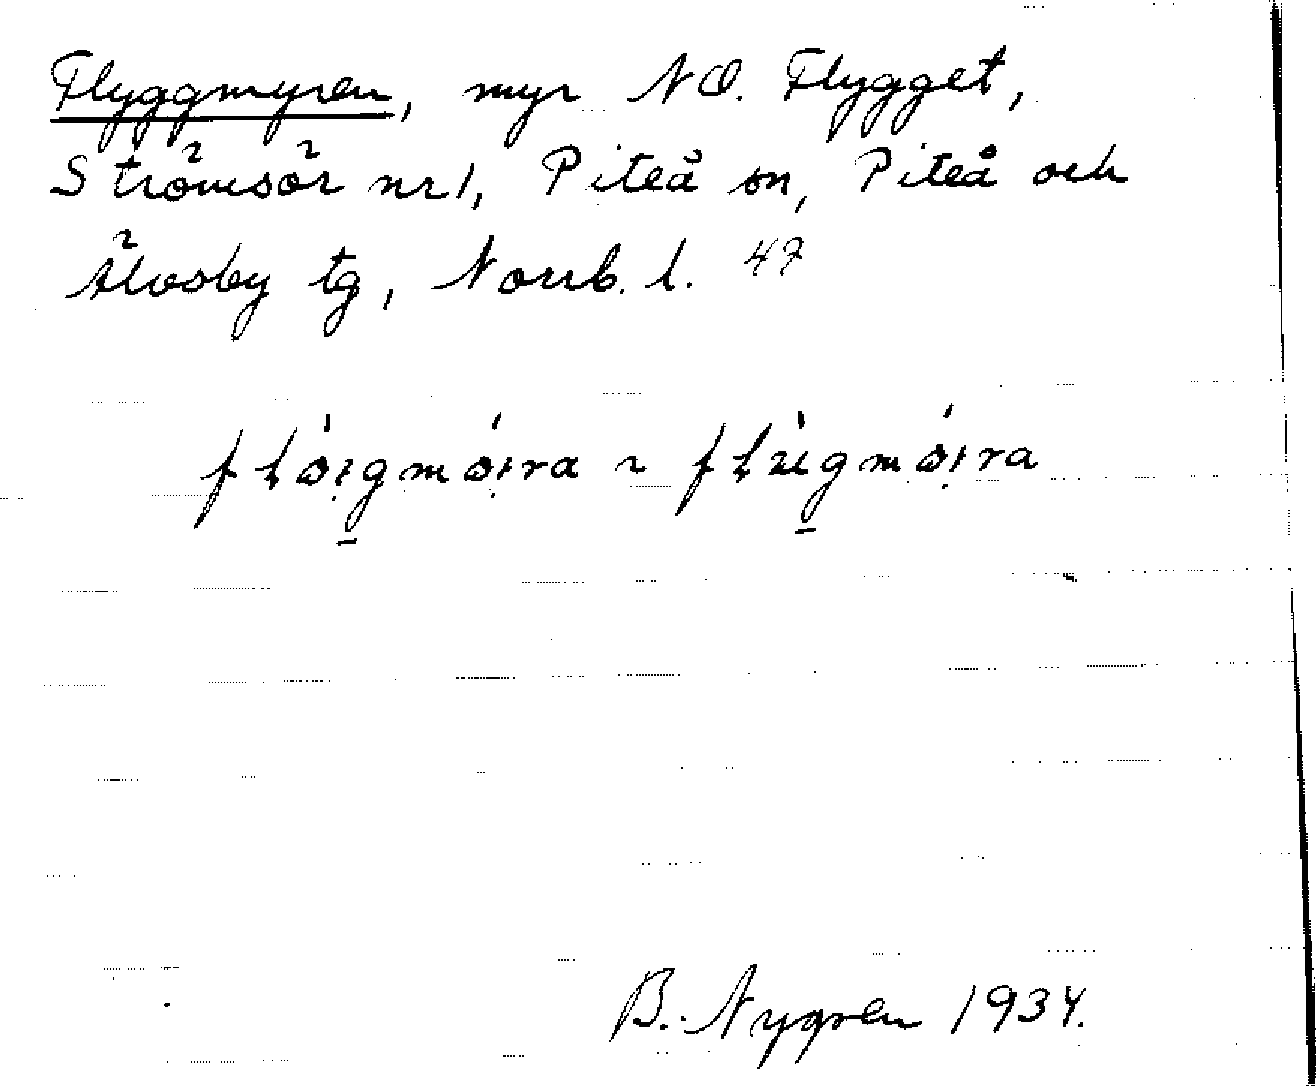 Flyggmyren, myr NO. Flygget,
Strömsör nr 1, Piteå sn, Piteå och
Älvsby tg, Norrb. l. 47
B. Nygren 1934.